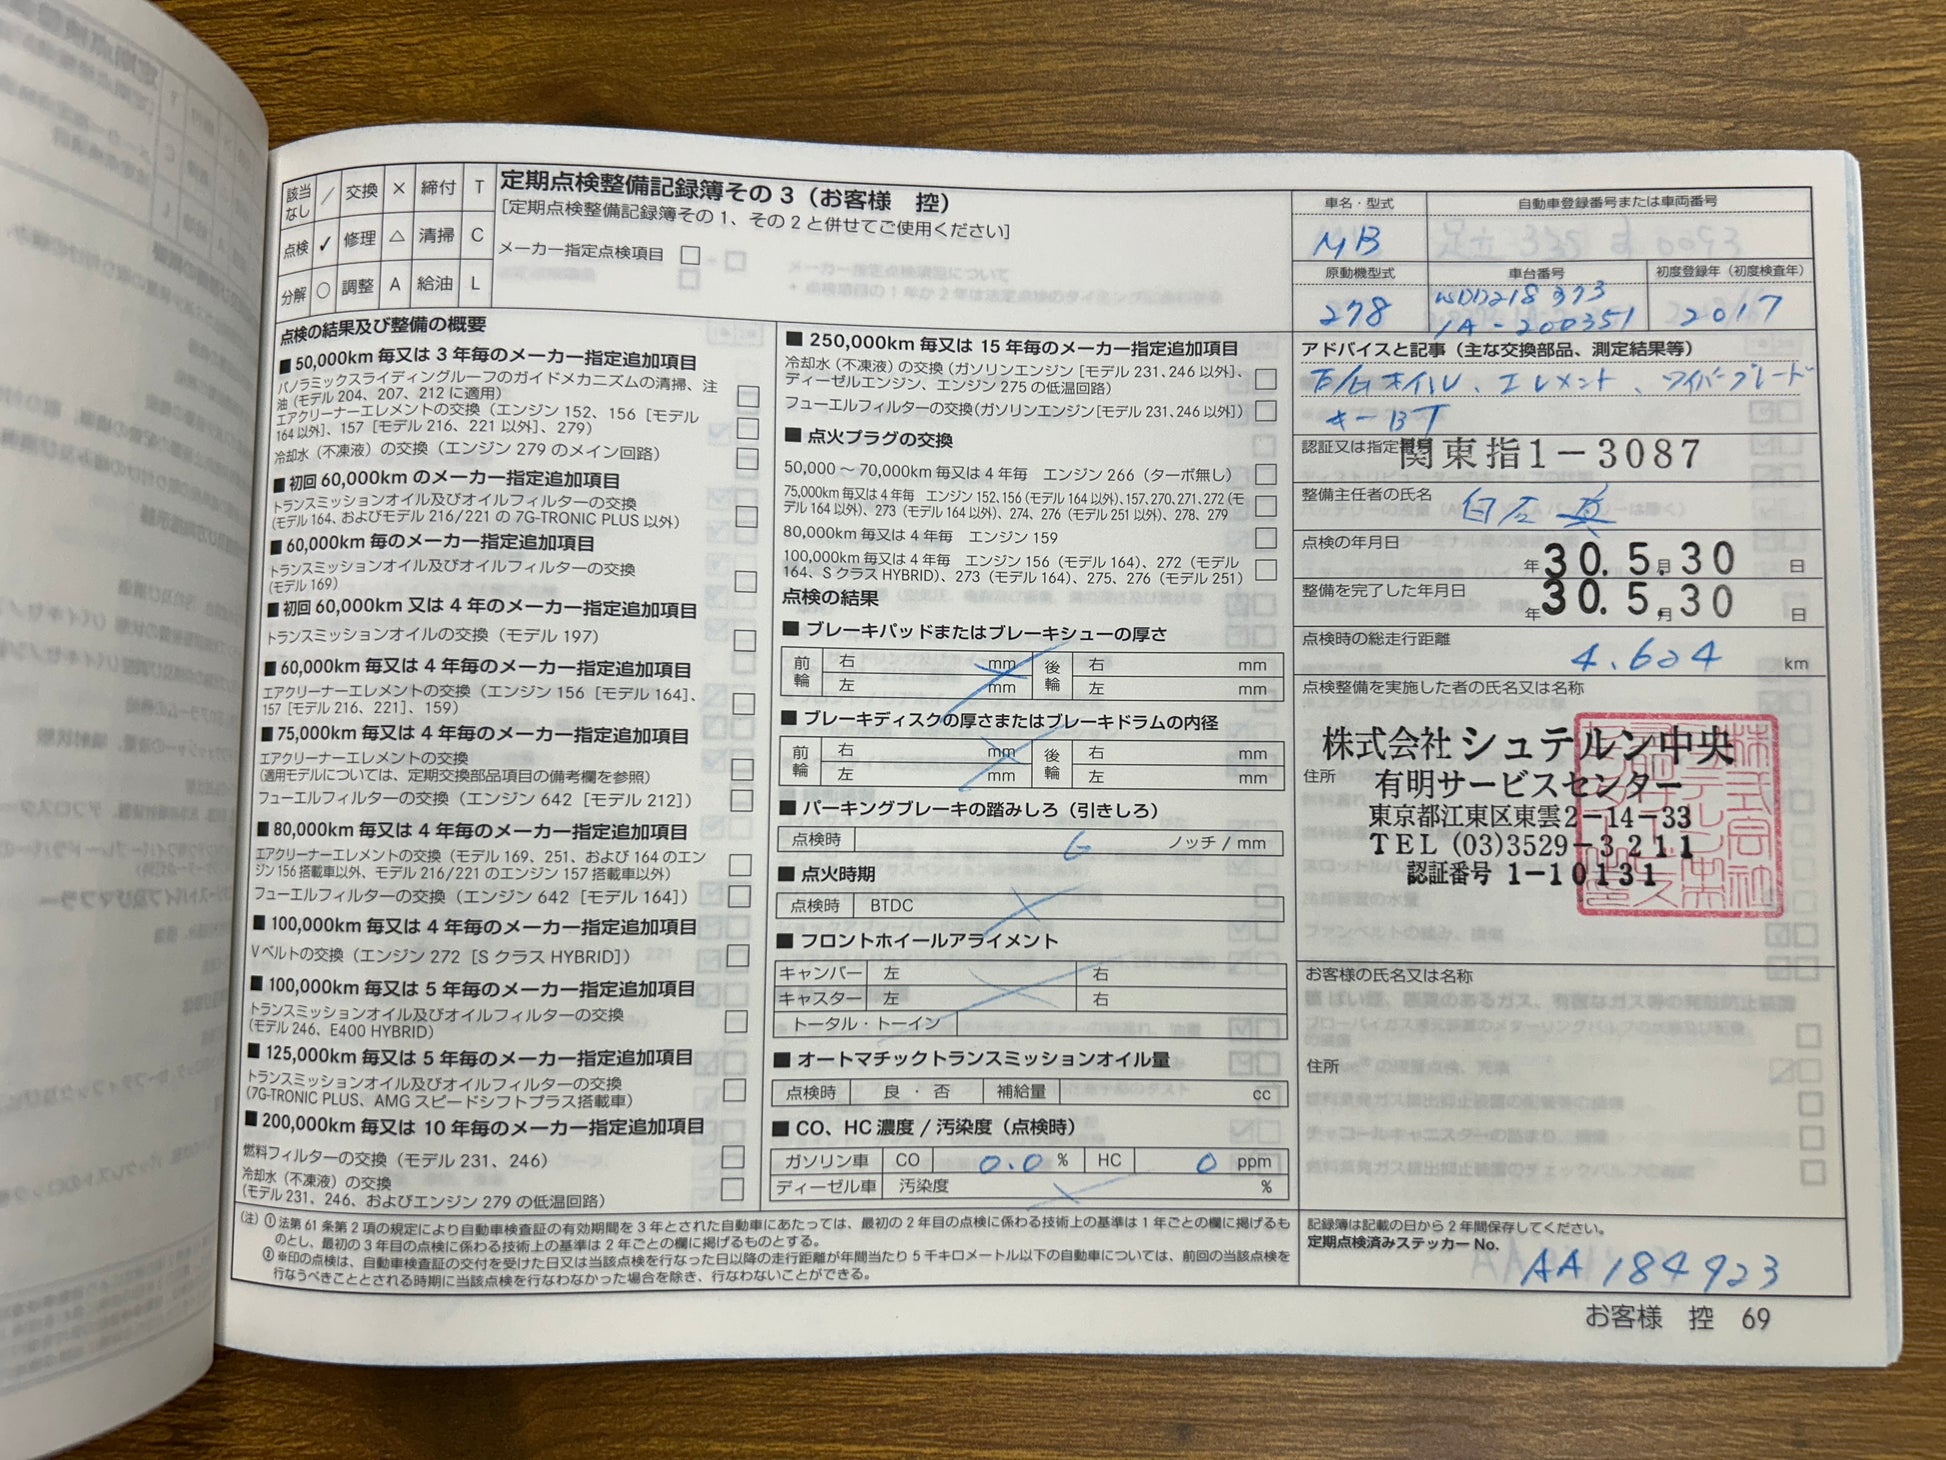 該当なし ／ 交換 × 締付 T
点検 ✓ 修理 △ 清掃 C
分解 ○ 調整 A 給油 L
定期点検整備記録簿その3（お客様　控）
[定期点検整備記録簿その1、その2と併せてご使用ください]
メーカー指定点検項目 □
点検の結果及び整備の概要
■50,000km毎又は3年毎のメーカー指定追加項目
パノラミックスライディングルーフのガイドメカニズムの清掃、注
油（モデル204、207、212に適用） □
エアクリーナーエレメントの交換（エンジン152、156［モデル
164以外］、157［モデル216、221以外］、279） □
冷却水（不凍液）の交換（エンジン279のメイン回路） □
■初回60,000kmのメーカー指定追加項目
トランスミッションオイル及びオイルフィルターの交換
（モデル164、およびモデル216/221の7G-TRONIC PLUS以外） □
■60,000km毎のメーカー指定追加項目
トランスミッションオイル及びオイルフィルターの交換
（モデル169） □
■初回60,000km又は4年毎のメーカー指定追加項目
トランスミッションオイルの交換（モデル197） □
■60,000km毎又は4年毎のメーカー指定追加項目
エアクリーナーエレメントの交換（エンジン156［モデル164］、
157［モデル216、221］、159） □
■75,000km毎又は4年毎のメーカー指定追加項目
エアクリーナーエレメントの交換
（適用モデルについては、定期交換部品項目の備考欄を参照） □
フューエルフィルターの交換（エンジン642［モデル212］） □
■80,000km毎又は4年毎のメーカー指定追加項目
エアクリーナーエレメントの交換（モデル169、251、および164のエン
ジン156搭載車以外、モデル216/221のエンジン157搭載車以外） □
フューエルフィルターの交換（エンジン642［モデル164］） □
■100,000km毎又は4年毎のメーカー指定追加項目
Vベルトの交換（エンジン272［SクラスHYBRID］） □
■100,000km毎又は5年毎のメーカー指定追加項目
トランスミッションオイル及びオイルフィルターの交換
（モデル246、E400 HYBRID） □
■125,000km毎又は5年毎のメーカー指定追加項目
トランスミッションオイル及びオイルフィルターの交換
（7G-TRONIC PLUS、AMGスピードシフトプラス搭載車） □
■200,000km毎又は10年毎のメーカー指定追加項目
燃料フィルターの交換（モデル231、246） □
冷却水（不凍液）の交換
（モデル231、246、およびエンジン279の低温回路） □
■250,000km毎又は15年毎のメーカー指定追加項目
冷却水（不凍液）の交換（ガソリンエンジン［モデル231、246以外］、
ディーゼルエンジン、エンジン275の低温回路） □
フューエルフィルターの交換（ガソリンエンジン［モデル231、246以外］） □
■点火プラグの交換
50,000～70,000km毎又は4年毎　エンジン266（ターボ無し） □
75,000km毎又は4年毎　エンジン152、156（モデル164以外）、157、270、271、272（モ
デル164以外）、273（モデル164以外）、274、276（モデル251以外）、278、279 □
80,000km毎又は4年毎　エンジン159 □
100,000km毎又は4年毎　エンジン156（モデル164）、272（モデル
164、SクラスHYBRID）、273（モデル164）、275、276（モデル251） □
点検の結果
■ブレーキパッドまたはブレーキシューの厚さ
前輪 右 mm 後輪 右 mm
左 mm 左 mm
■ブレーキディスクの厚さまたはブレーキドラムの内径
前輪 右 mm 後輪 右 mm
左 mm 左 mm
■パーキングブレーキの踏みしろ（引きしろ）
点検時 6 ノッチ/mm
■点火時期
点検時 BTDC
■フロントホイールアライメント
キャンバー 左 右
キャスター 左 右
トータル・トーイン
■オートマチックトランスミッションオイル量
点検時 良・否 補給量 cc
■CO、HC濃度/汚染度（点検時）
ガソリン車 CO 0.0 % HC 0 ppm
ディーゼル車 汚染度 %
車名・型式 自動車登録番号または車両番号
MB
原動機型式 車台番号 初度登録年（初度検査年）
278 WDD218 373 2017
1A-200351
アドバイスと記事（主な交換部品、測定結果等）
エレメント、ワイパーブレード
キーBT
認証又は指定番号 関東指1－3087
整備主任者の氏名
点検の年月日 年 30. 5. 月 30 日
整備を完了した年月日 年 30. 5. 月 30 日
点検時の総走行距離
4.604 km
点検整備を実施した者の氏名又は名称
株式会社シュテルン中央
住所 有明サービスセンター
東京都江東区東雲2－14－33
TEL (03)3529－3211
認証番号 1－10131
お客様の氏名又は名称
住所
（注）①法第61条第2項の規定により自動車検査証の有効期間を3年とされた自動車にあたっては、最初の2年目の点検に係わる技術上の基準は1年ごとの欄に掲げるも
のとし、最初の3年目の点検に係わる技術上の基準は2年ごとの欄に掲げるものとする。
②※印の点検は、自動車検査証の交付を受けた日又は当該点検を行なった日以降の走行距離が年間当たり5千キロメートル以下の自動車については、前回の当該点検を
行なうべきこととされる時期に当該点検を行なわなかった場合を除き、行なわないことができる。
記録簿は記載の日から2年間保存してください。
定期点検済みステッカーNo.
AA184923
お客様　控　69